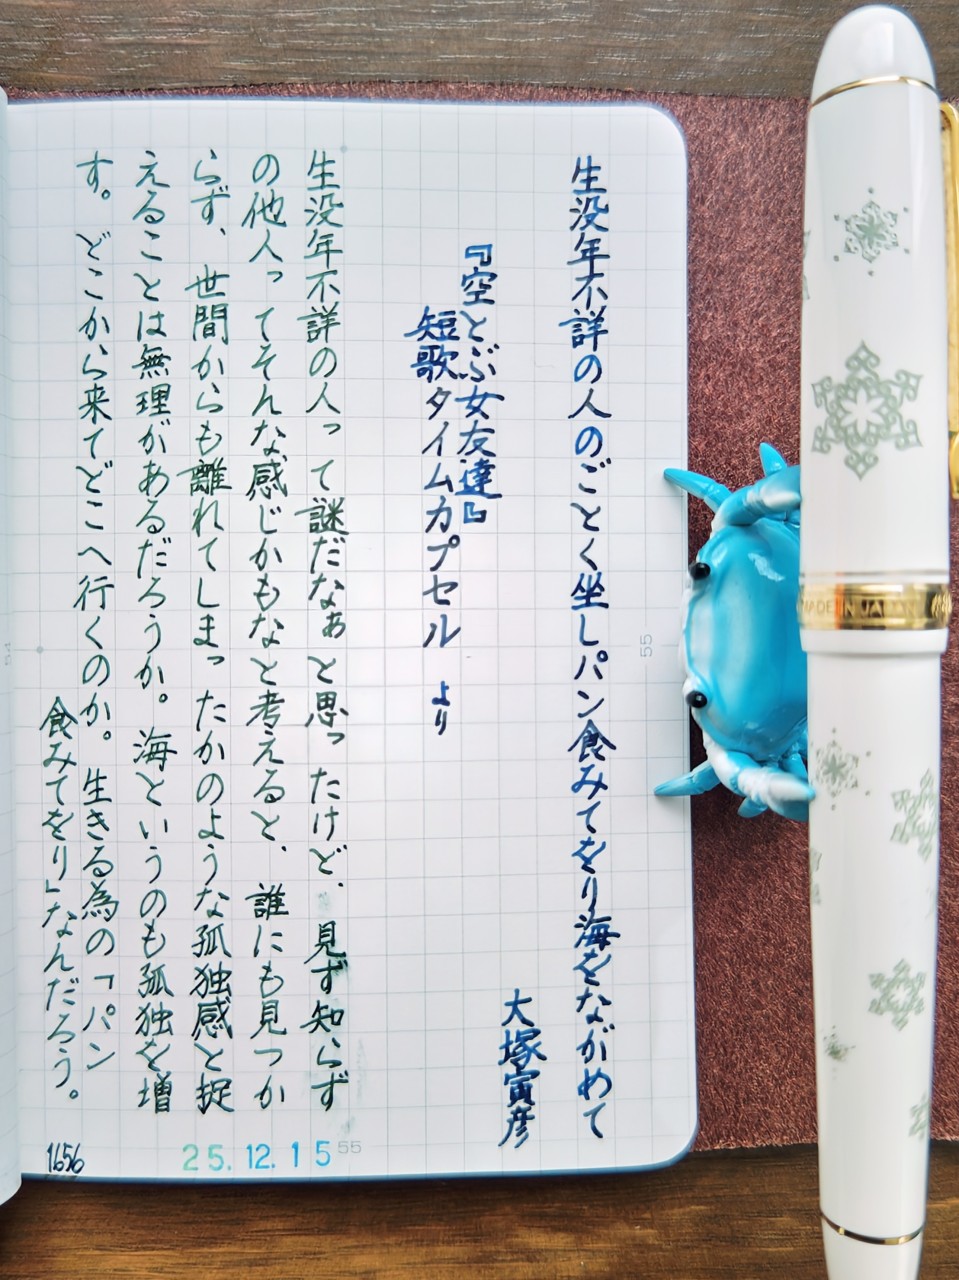 生没年不詳の人のごとく坐しパン食みてをり海をながめて
大塚寅彦
『空とぶ女友達』
短歌タイムカプセル より
生没年不詳の人って謎だなぁと思ったけど、見ず知らず
の他人ってそんな感じかもなと考えると、誰にも見つか
らず、世間からも離れてしまったかのような孤独感と捉
えることは無理があるだろうか。海というのも孤独を増
す。どこから来てどこへ行くのか。生きる為の「パン
食みてをり」なんだろう。
1656
25.12.15
55
55
54
MADE IN JAPAN